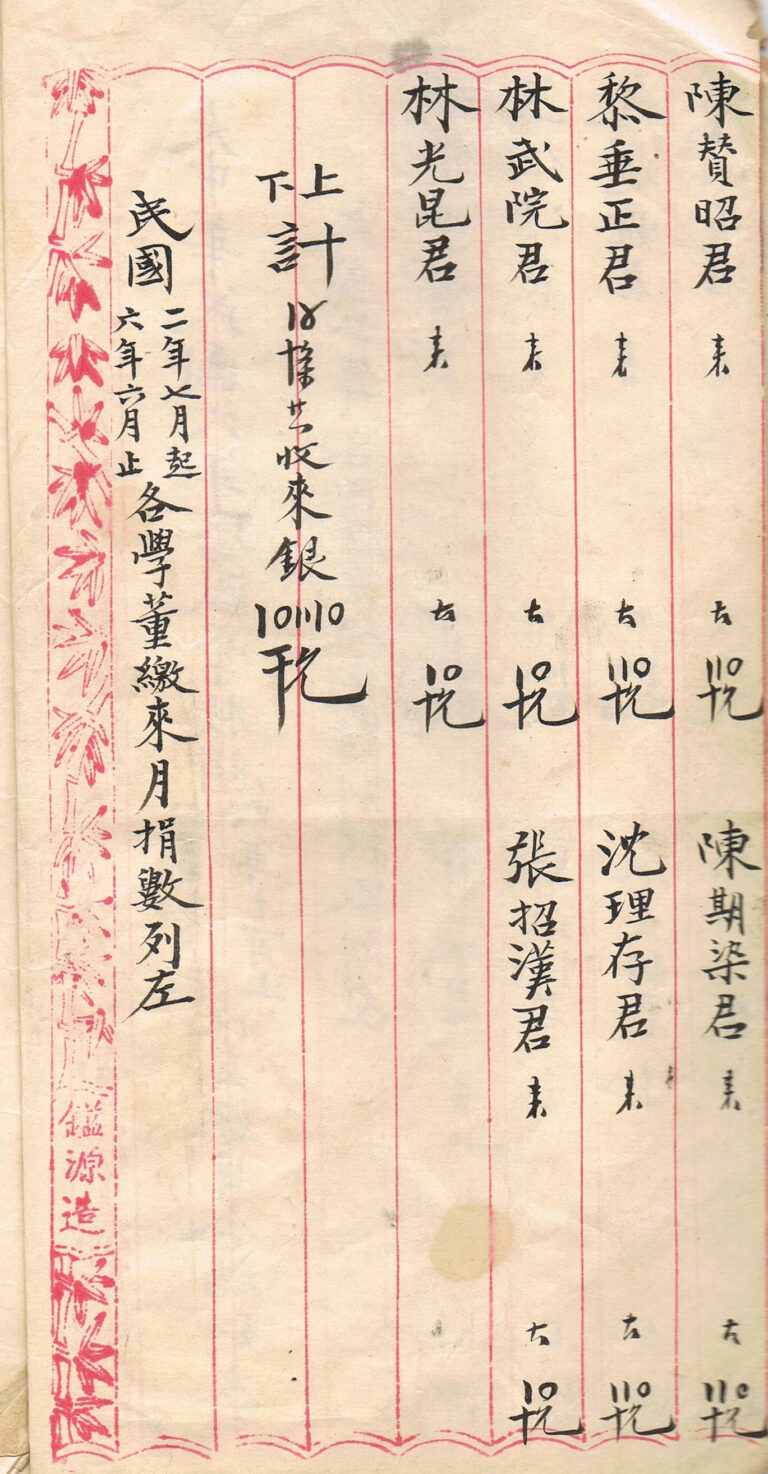 陳賛昭君 来 大〢〇十元 陳期染君 来 大〢〇十元
黎垂正君 来 大〢〇十元 沈理存君 来 大〢〇十元
林武院君 来 大〡〇十元 張招漢君 来 大〡〇十元
林光昆君 来 大〡〇十元
上下計〡〨條共收來銀〡〇〣〇千元
民國二年七月起六年六月止各學董繳來月捐數列左
鎰源造